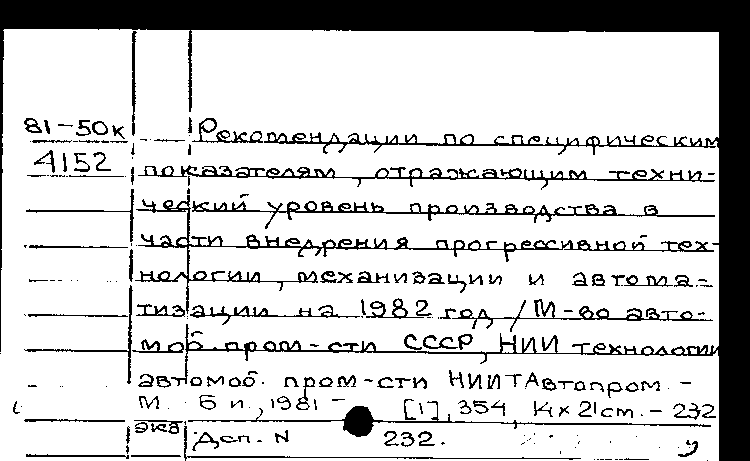 81-50к Рекомендации по специфическим
4152 показателям, отражающим техни-
ческий уровень производства в
части внедрения прогрессивной тех-
нологии, механизации и автома-
тизации на 1982 год / М-во авто-
моб. пром-сти СССР, НИИ технологии
автомоб. пром-сти НИИТАвтопром. -
М. Б и., 1981 - [1], 354, 14×21cm. - 232
экз Деп. N 232.